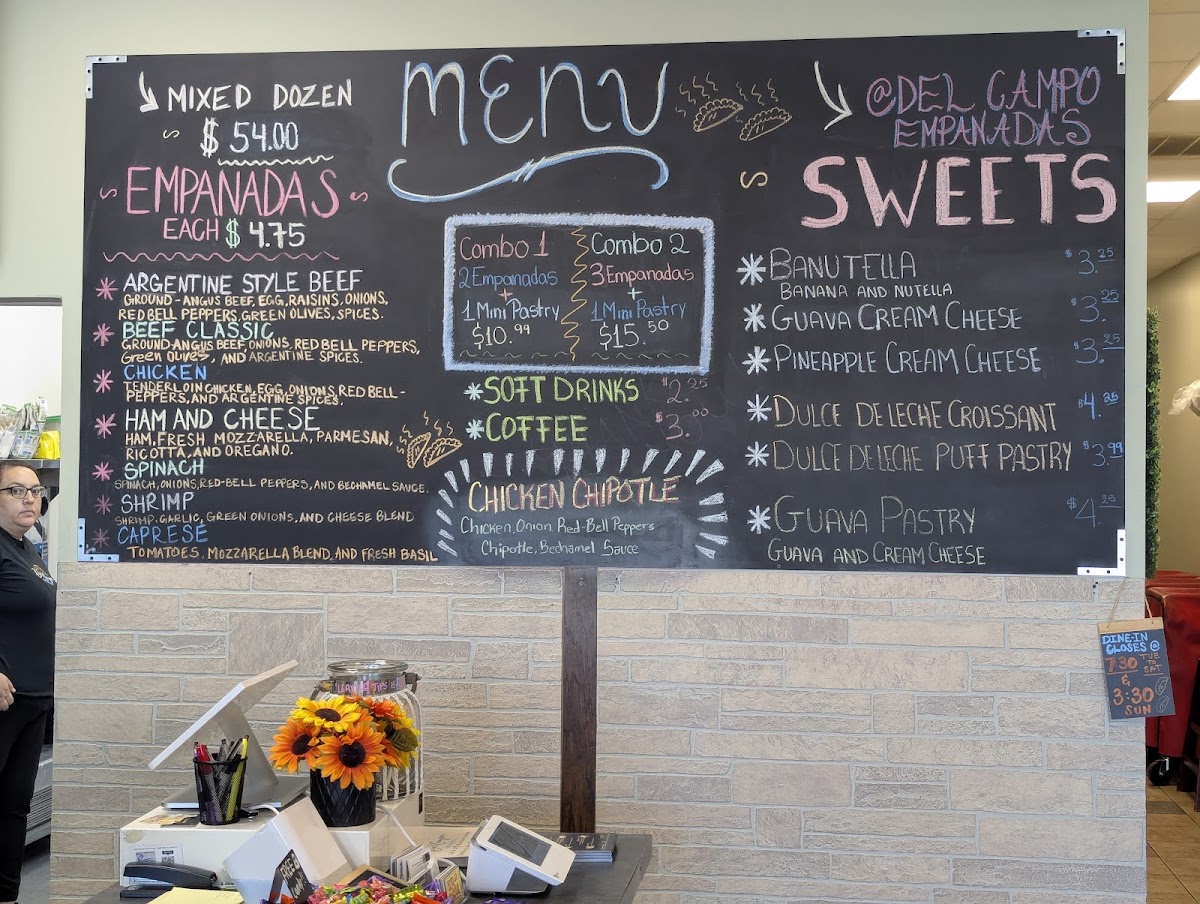 MIXED DOZEN
$ 54.00
EMPANADAS
EACH $ 4.75
ARGENTINE STYLE BEEF
GROUND-ANGUS BEEF, EGG, RAISINS, ONIONS,
RED BELL PEPPERS, GREEN OLIVES, SPICES.
BEEF CLASSIC
GROUND ANGUS BEEF, ONIONS, RED BELL PEPPERS,
Green Olives, AND ARGENTINE SPICES.
CHICKEN
TENDERLOIN CHICKEN, EGG, ONIONS, RED BELL-
PEPPERS, AND ARGENTINE SPICES.
HAM AND CHEESE
HAM, FRESH MOZZARELLA, PARMESAN,
RICOTTA, AND OREGANO.
SPINACH
SPINACH, ONIONS, RED-BELL PEPPERS, AND BECHAMEL SAUCE.
SHRIMP
SHRIMP, GARLIC, GREEN ONIONS, AND CHEESE BLEND
CAPRESE
TOMATOES, MOZZARELLA BLEND, AND FRESH BASIL
MENU
Combo 1
2 Empanadas
+
1 Mini Pastry
$10.99
Combo 2
3 Empanadas
+
1 Mini Pastry
$15.50
SOFT DRINKS $2.25
COFFEE $3.00
CHICKEN CHIPOTLE
Chicken, Onion, Red-Bell Peppers
Chipotle, Bechamel Sauce
@DEL CAMPO
EMPANADAS
SWEETS
BANUTELLA $3.25
BANANA AND NUTELLA
GUAVA CREAM CHEESE $3.25
PINEAPPLE CREAM CHEESE $3.25
DULCE DE LECHE CROISSANT $4.25
DULCE DE LECHE PUFF PASTRY $3.99
GUAVA PASTRY $4.25
GUAVA AND CREAM CHEESE
DINE-IN
CLOSES @
7:30 TUE TO SAT
&
3:30
SUN